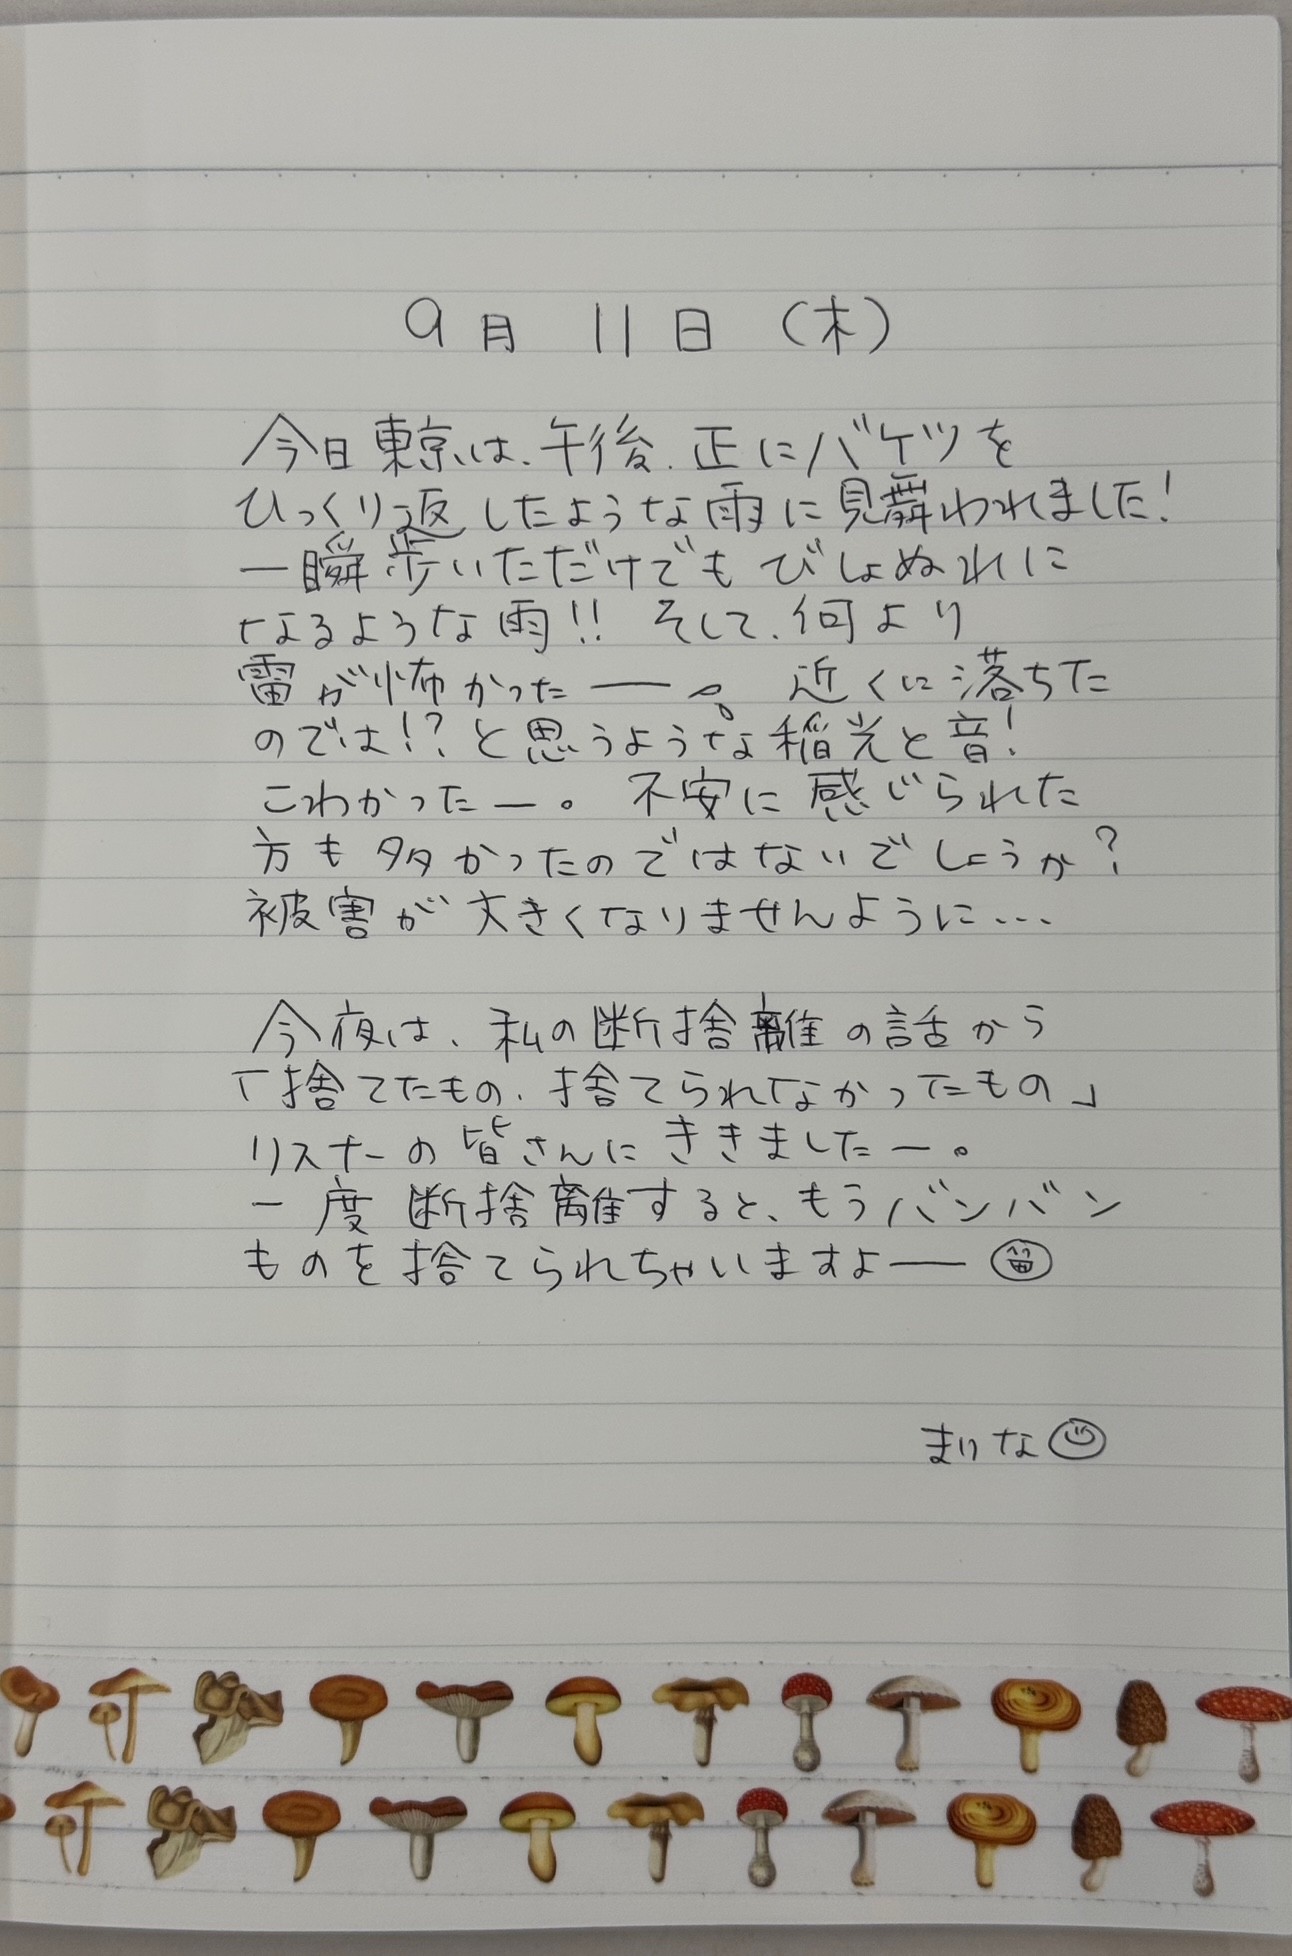 9月 11日 (木)
今日東京は、午後、正にバケツを
ひっくり返したような雨に見舞われました!
一瞬歩いただけでもびしょぬれに
なるような雨!! そして、何より
雷が怖かったー。 近くに落ちた
のでは!?と思うような稲光と音!
こわかったー。 不安に感じられた
方も多かったのではないでしょうか?
被害が大きくなりませんように…
今夜は、私の断捨離の話から
「捨てたもの、捨てられなかったもの」
リスナーの皆さんにききましたー。
一度断捨離すると、もうバンバン
ものを捨てられちゃいますよー
まりな